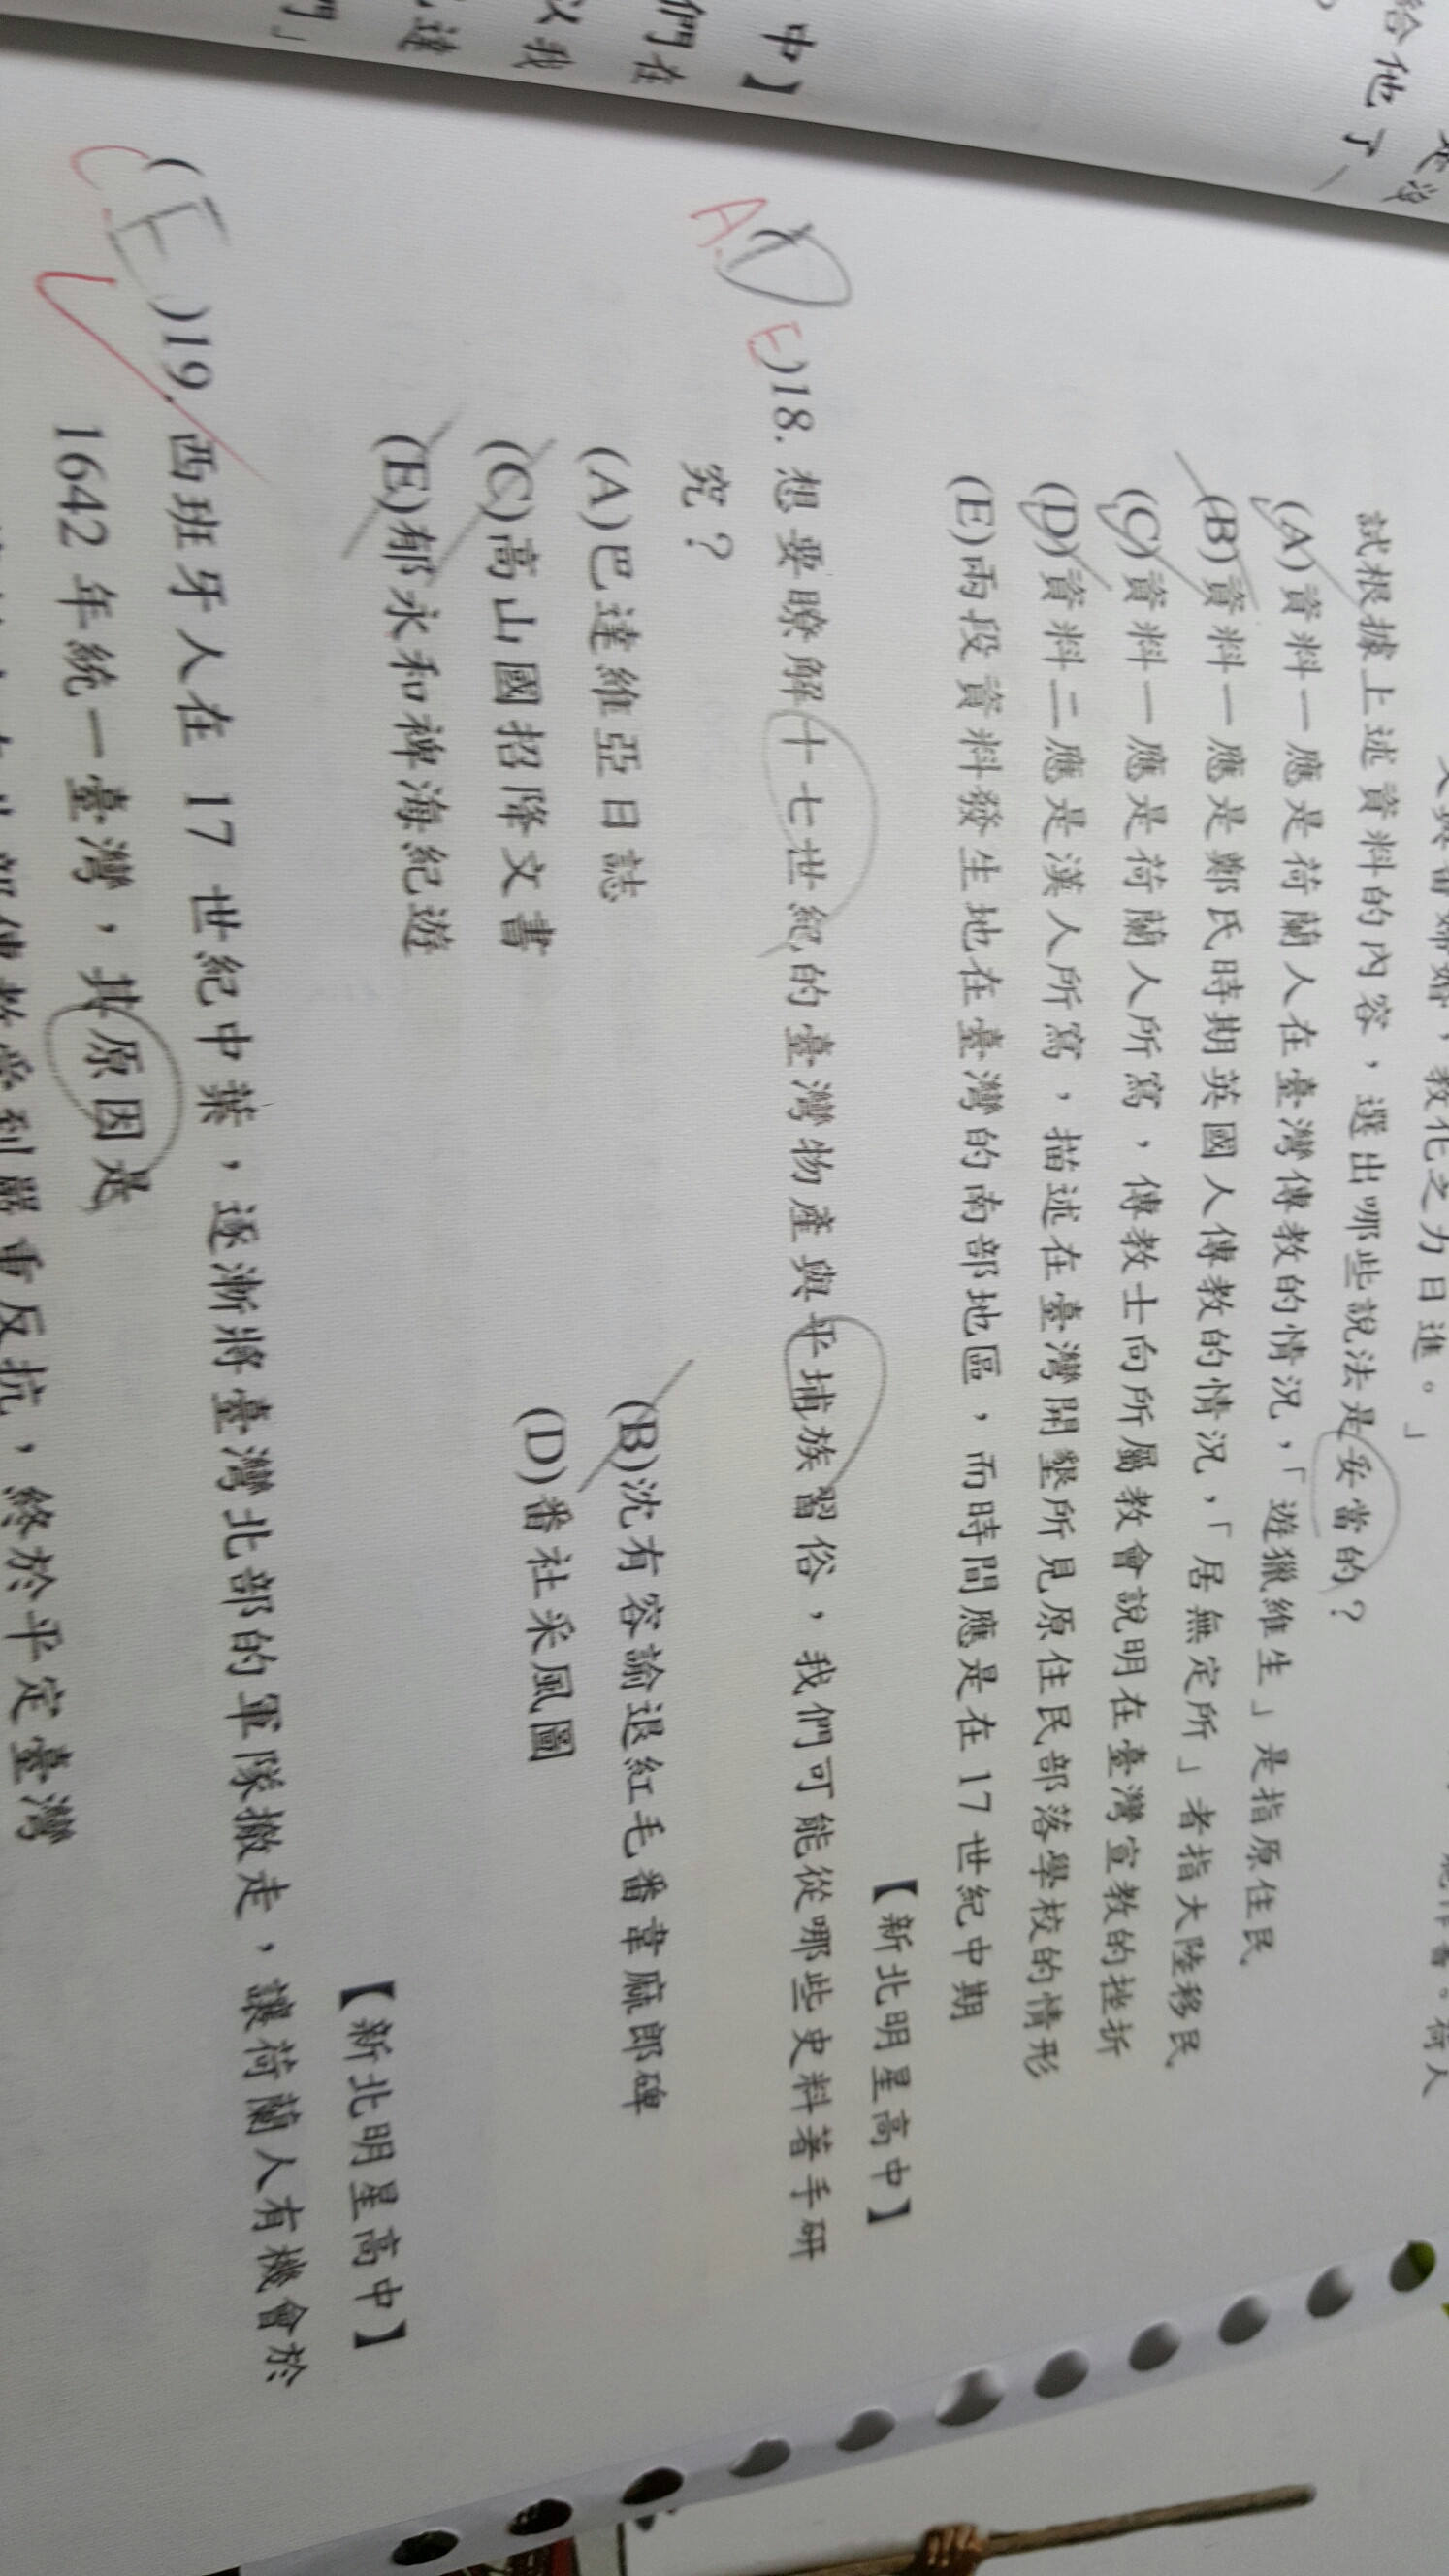 給他了
中】
們在
以我
們」
教化之力日進。」
試根據上述資料的內容，選出哪些說法是妥當的？
(A)資料一應是荷蘭人在臺灣傳教的情況，「遊獵維生」是指原住民
(B)資料一應是鄭氏時期英國人傳教的情況，「居無定所」者指大陸移民
(C)資料一應是荷蘭人所寫，傳教士向所屬教會說明在臺灣宣教的挫折
(D)資料二應是漢人所寫，描述在臺灣開墾所見原住民部落學校的情形
(E)兩段資料發生地在臺灣的南部地區，而時間應是在 17 世紀中期
【新北明星高中】
A
E
( )18. 想要瞭解十七世紀的臺灣物產與平埔族習俗，我們可能從哪些史料著手研
究？
(A)巴達維亞日誌 (B)沈有容諭退紅毛番韋麻郎碑
(C)高山國招降文書 (D)番社采風圖
(E)郁永和裨海紀遊
【新北明星高中】
C
(E)19. 西班牙人在 17 世紀中葉，逐漸將臺灣北部的軍隊撤走，讓荷蘭人有機會於
1642 年統一臺灣，其原因是
教受到嚴重反抗，終於平定臺灣